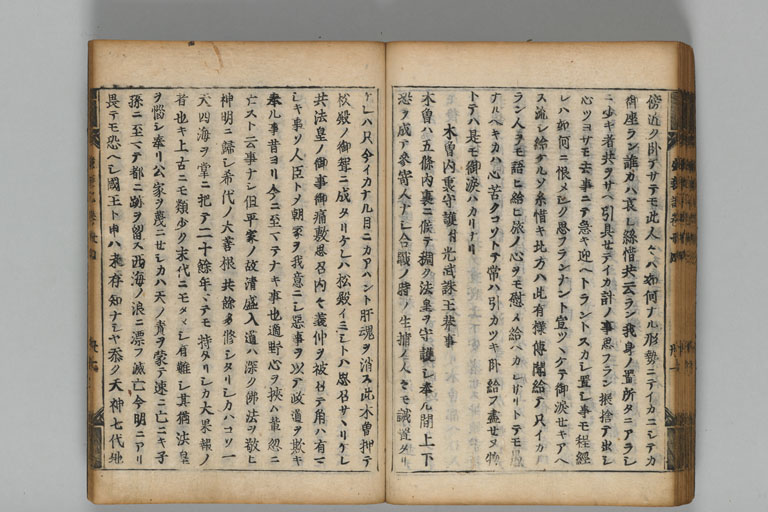 傍近ク臥テサテモ此人々ハ如何ナル形勢ニテイカニシテカ
御座ラン誰カハ哀レ糸惜共云ラン我身ノ置所タニアラシ
ニ少キ者共ヲサヘ引具セテイカ計ノ事思フラン振捨テ出シ
心ツヨサモ去事ニテ急キ迎ヘトラントスカシ置シ事モ程經
レハ如何ニ恨メシク思フランナント宣ツヽケテ御涙セキアヘ
ス流シ給ケルソ糸惜キ北方ハ此有樣傳聞給テ只イカナ
ラン人ヲモ語ヒ給ヒ旅ノ心ヲモ慰メ給ヘカシサリトテモ愚
ナルヘキカハ心苦クコソトテ常ハ引カツキ臥給フ盡セヌ物
トテハ是モ御涙ハカリナリ
木曽内裏守護付光武誅王莽事
木曽ハ五條内裏ニ候テ稠ク法皇ヲ守護シ奉ル間上下
恐ヲ成テ參寄人ナシ合戰ノ時ノ生捕ノ人々モ誡置タリ
ケレハ只今イカナル目ニカアハント肝魂ヲ消ス此木曽押テ
松殿ノ御聟ニ成タリケレハ松殿イミシトハ思召サヽリケレ
共法皇ノ御事御痛敷思召内々義仲ヲ被召テ角ハ有マ
シキ事ソ人臣トメ朝家ヲ我意ニシ惡事ヲ以テ政道ヲ欺キ
奉ル事昔ヨリ今ニ至マテナキ事也適野心ヲ挾ハ輩忽ニ
亡スト云事ナシ但平家ノ故清盛入道ハ深ク佛法ヲ敬ヒ
神明ニ歸シ希代ノ大善根共餘多修シタリシカハコソ一
天四海ヲ掌ニ把テ二十餘年マテモ持タリシカ大果報ノ
者也キ上古ニモ類少ク末代ニモタメシ有難シ其猶法皇
ヲ惱シ奉リ公家ヲ蔑ニセシカハ天ノ責ヲ蒙テ速ニ亡ニキ子
孫ニ至マテ都ニ跡ヲ留ス西海ノ浪ニ漂フ滅亡今明ニアリ
畏テモ恐ヘシ國王ト申ハ未存知ナシヤ忝ク天神七代地